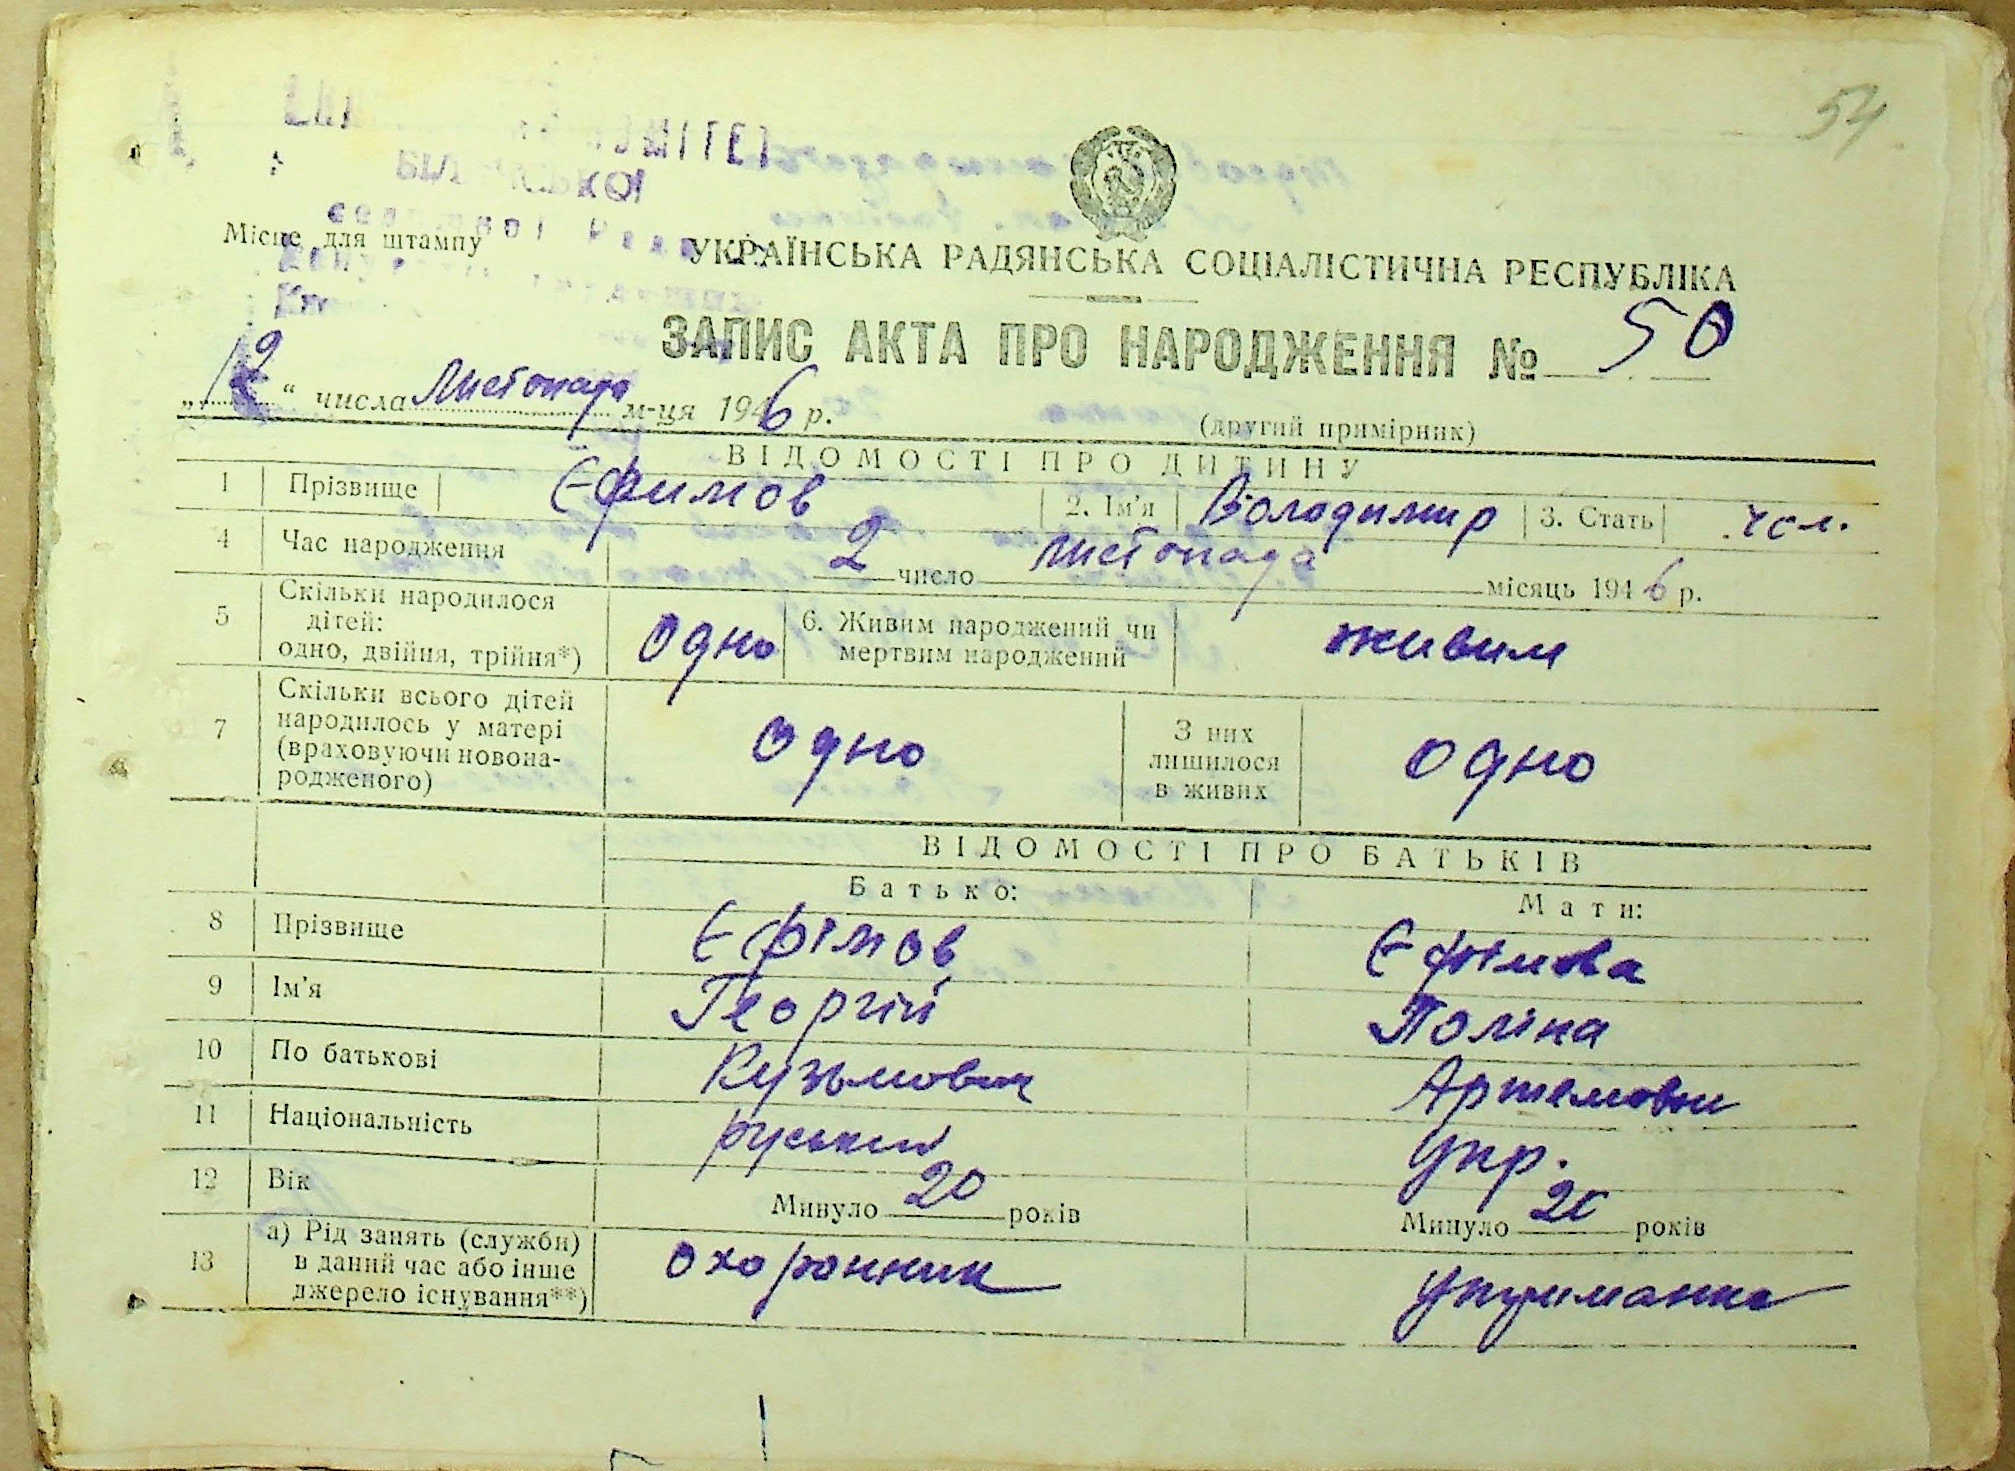 54
Місце для штампу
УКРАЇНСЬКА РАДЯНСЬКА СОЦІАЛІСТИЧНА РЕСПУБЛІКА
ЗАПИС АКТА ПРО НАРОДЖЕННЯ № 50
„12“ числа Листопада м-ця 1946 р.
(другий примірник)
ВІДОМОСТІ ПРО ДИТИНУ
1 Прізвище Єфимов 2. Ім'я Володимир 3. Стать чол.
4 Час народження 2 число Листопада місяць 1946 р.
5 Скільки народилося дітей: одно, двійня, трійня*) Одно 6. Живим народжений чи мертвим народжений живим
7 Скільки всього дітей народилось у матері (враховуючи новонародженого) Одно З них лишилося в живих Одно
ВІДОМОСТІ ПРО БАТЬКІВ
Батько: Мати:
8 Прізвище Єфімов Єфімова
9 Ім'я Георгій Поліна
10 По батькові Кузьмович Артемовни
11 Національність руський укр.
12 Вік Минуло 20 років Минуло років
13 а) Рід занять (служби) в даний час або інше джерело існування**) Охоронник Утриманка